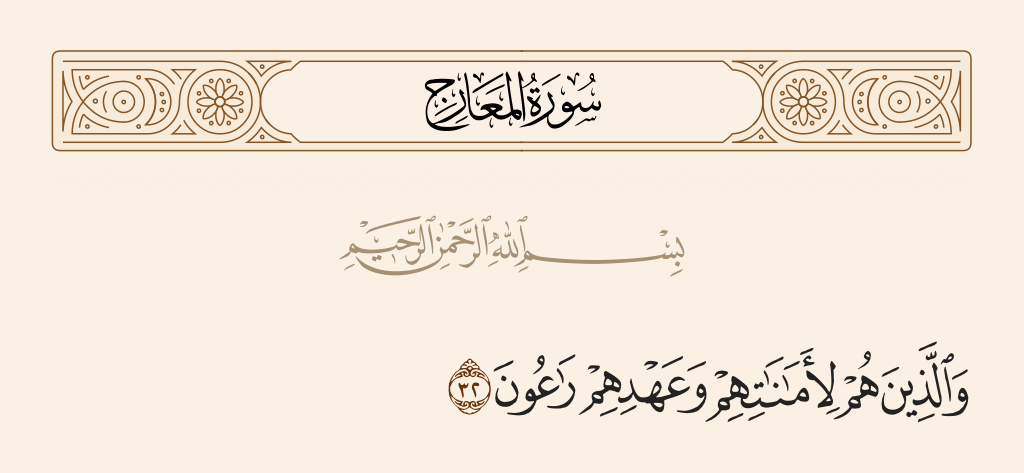 سُورَةُ المَعَارِج
بِسْمِ ٱللَّهِ ٱلرَّحْمَٰنِ ٱلرَّحِيمِ
وَٱلَّذِينَ هُمْ لِأَمَٰنَٰتِهِمْ وَعَهْدِهِمْ رَٰعُونَ ٣٢